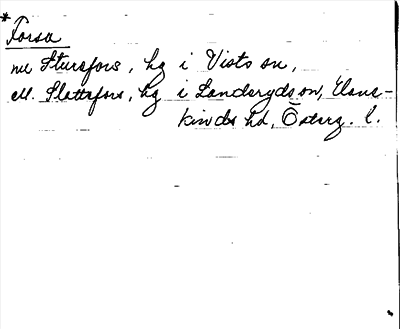 * Forsa
nu Sturefors, hg i Vists sn,
ell. Slattefors, hg i Landeryds sn, Hane-
kinds hd, Österg. l.